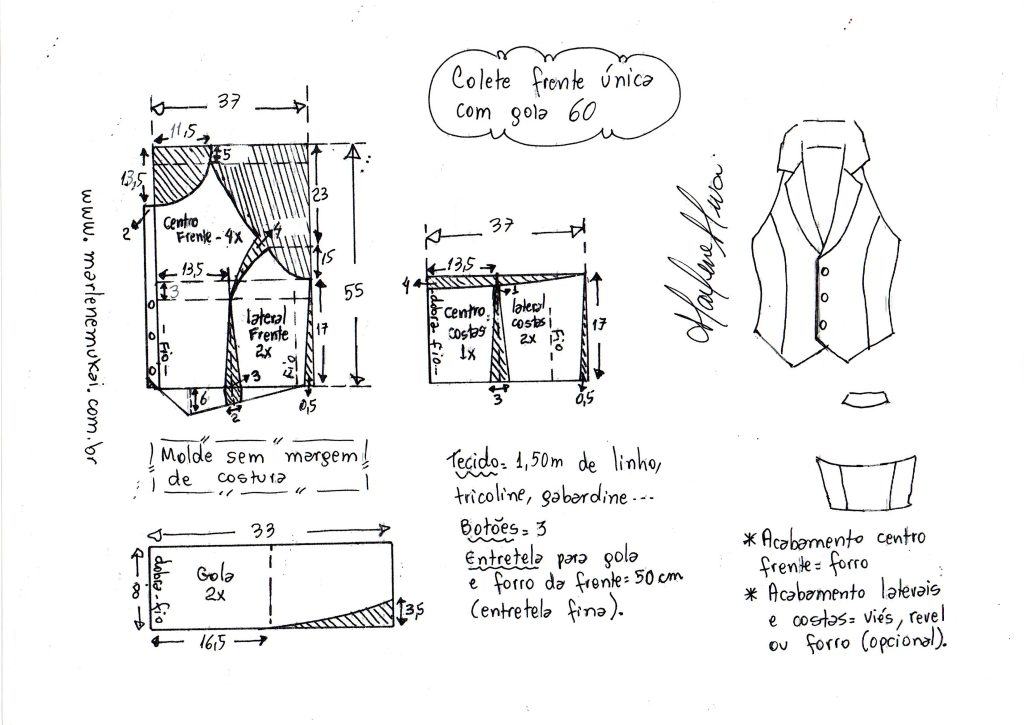 Colete frente única
com gola 60
37
11,5
5
13,5
2
Centro
Frente - 4x
23
4
15
13,5
3
55
17
lateral
Frente
2x
-Fio-
Fio
3
6
2
0,5
www.marlenemukai.com.br
Molde sem margem
de costura
37
13,5
4
1
dobra fio
centro
costas
1x
lateral
costas
2x
Fio
17
3
0,5
Marlene Mukai
33
8
dobra-fio
Gola
2x
3,5
16,5
Tecido= 1,50m de linho,
tricoline, gabardine---
Botões= 3
Entretela para gola
e forro da frente= 50cm
(entretela fina).
* Acabamento centro
frente= forro
* Acabamento laterais
e costas= viés, revel
ou forro (opcional).